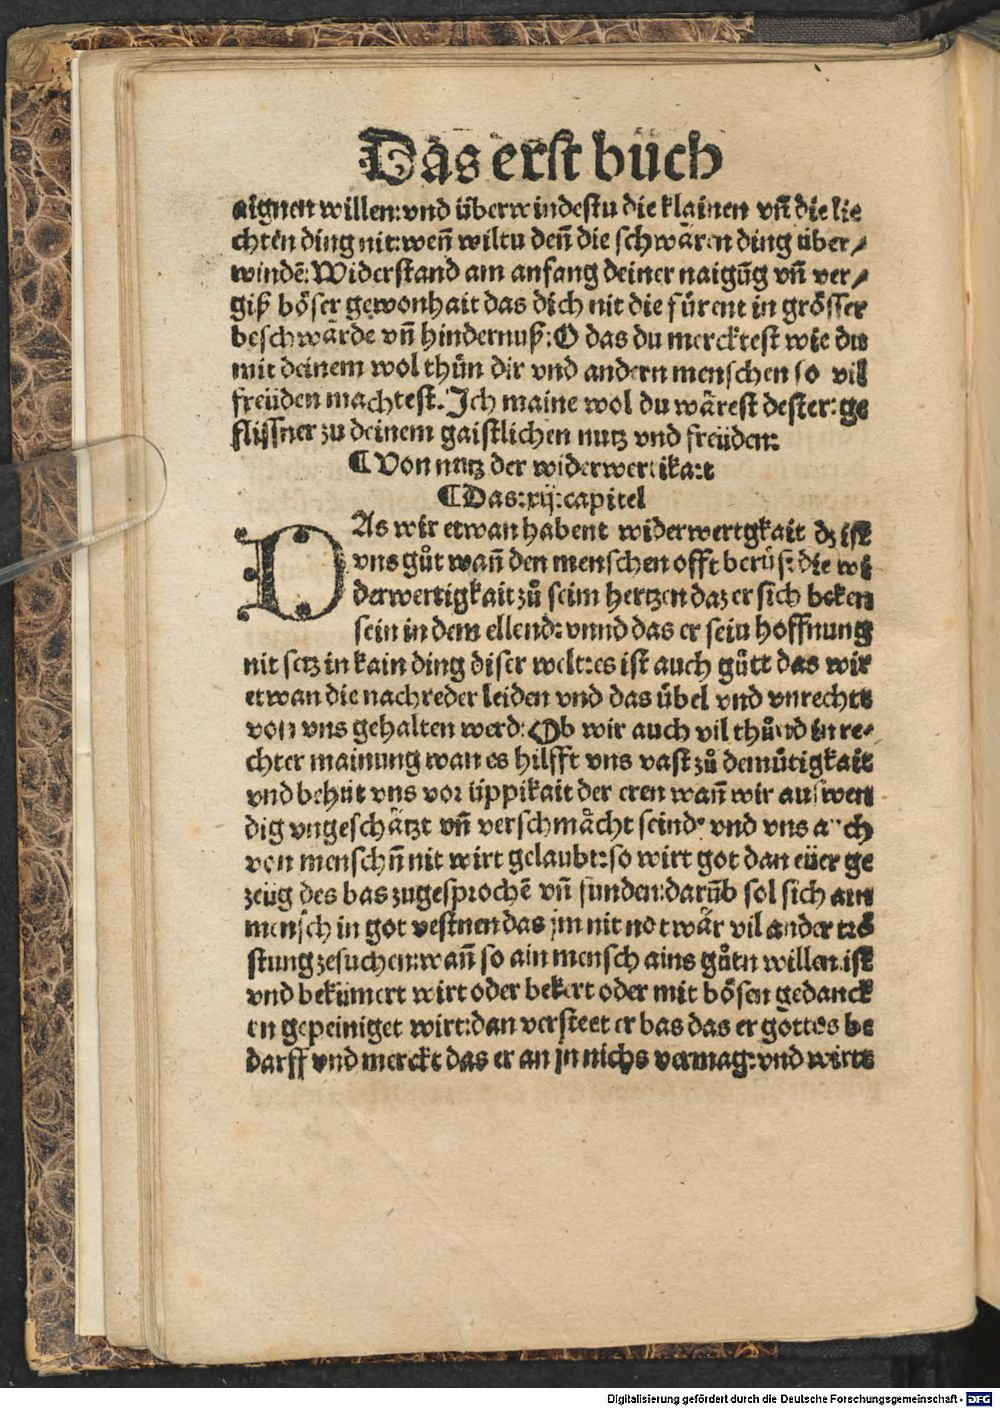 Das erst bůch
aignen willen: vnd überwindestu die klainen vñ die lie
chten ding nit: weñ wiltu deñ die schwären ding über⸗
windē: Widerstand am anfang deiner naigũg vñ ver⸗
giß böser gewonhait das dich nit die fürent in grösser
beschwärde vñ hindernuß: O das du mercktest wie du
mit deinem wol thůn dir vnd andern menschen so vil
freüden machtest. Ich maine wol du wärest dester: ge
flissner zu deinem gaistlichen nutz vnd freüden:
¶ Von nutz der widerwertikait
¶ Das: xij: capitel
DAs wir etwan habent widerwertgkait dz ist
vns gůt wañ den menschen offt berüft die wi
derwertigkait zů seim hertzen daz er sich beken
sein in dem ellend: vnnd das er sein hoffnung
nit setz in kain ding diser welt: es ist auch gůtt das wir
etwan die nachreder leiden vnd das übel vnd vnrechts
von vns gehalten werd: Ob wir auch vil thůnd in re⸗
chter mainung wan es hilfft vns vast zů demütigkait
vnd behüt vns vor üppikait der eren wañ wir außwen
dig vngeschätzt vñ verschmächt seind: vnd vns auch
von menschñ nit wirt gelaubt: so wirt got dan eüer ge
zeüg des bas zugesprochē vñ funden: darũb sol sich ain
mensch in got vestnen das jm nit not wär vil ander trö
stung zesuchen: wañ so ain mensch ains gůtn willen ist
vnd bekümert wirt oder bekert oder mit bösen gedanck
en gepeiniget wirt: dan versteet er bas das er gottes be
darff vnd merckt das er an jn nichs vermag: vnd wirts
Digitalisierung gefördert durch die Deutsche Forschungsgemeinschaft - DFG